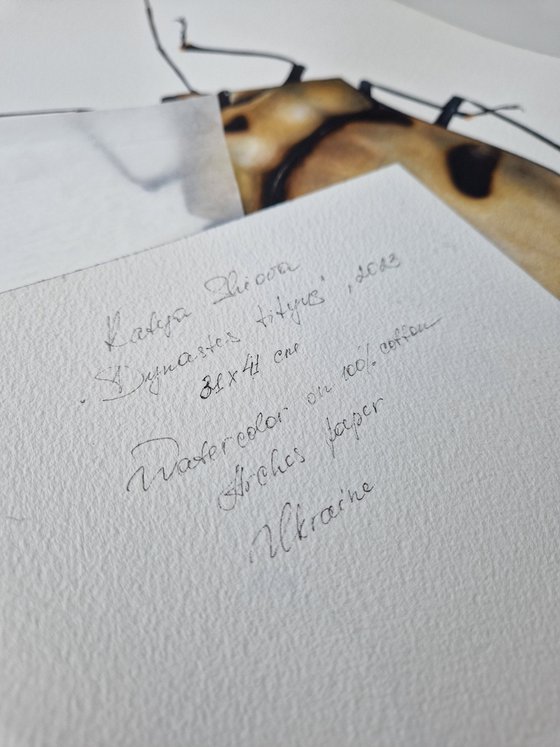 Katya Shiova
"Dynastes tityus", 2023
31x41 cm
Watercolor on 100% cotton
Arches paper
Ukraine